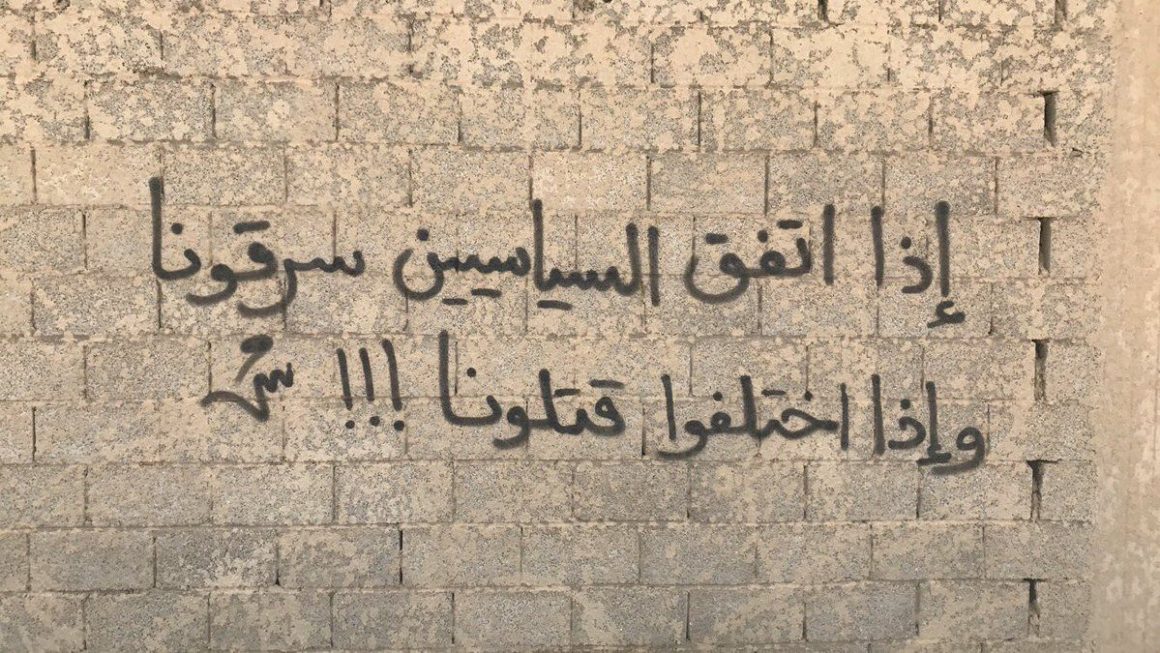 إذا اتفق السياسيين سرقونا
وإذا اختلفوا قتلونا !!!